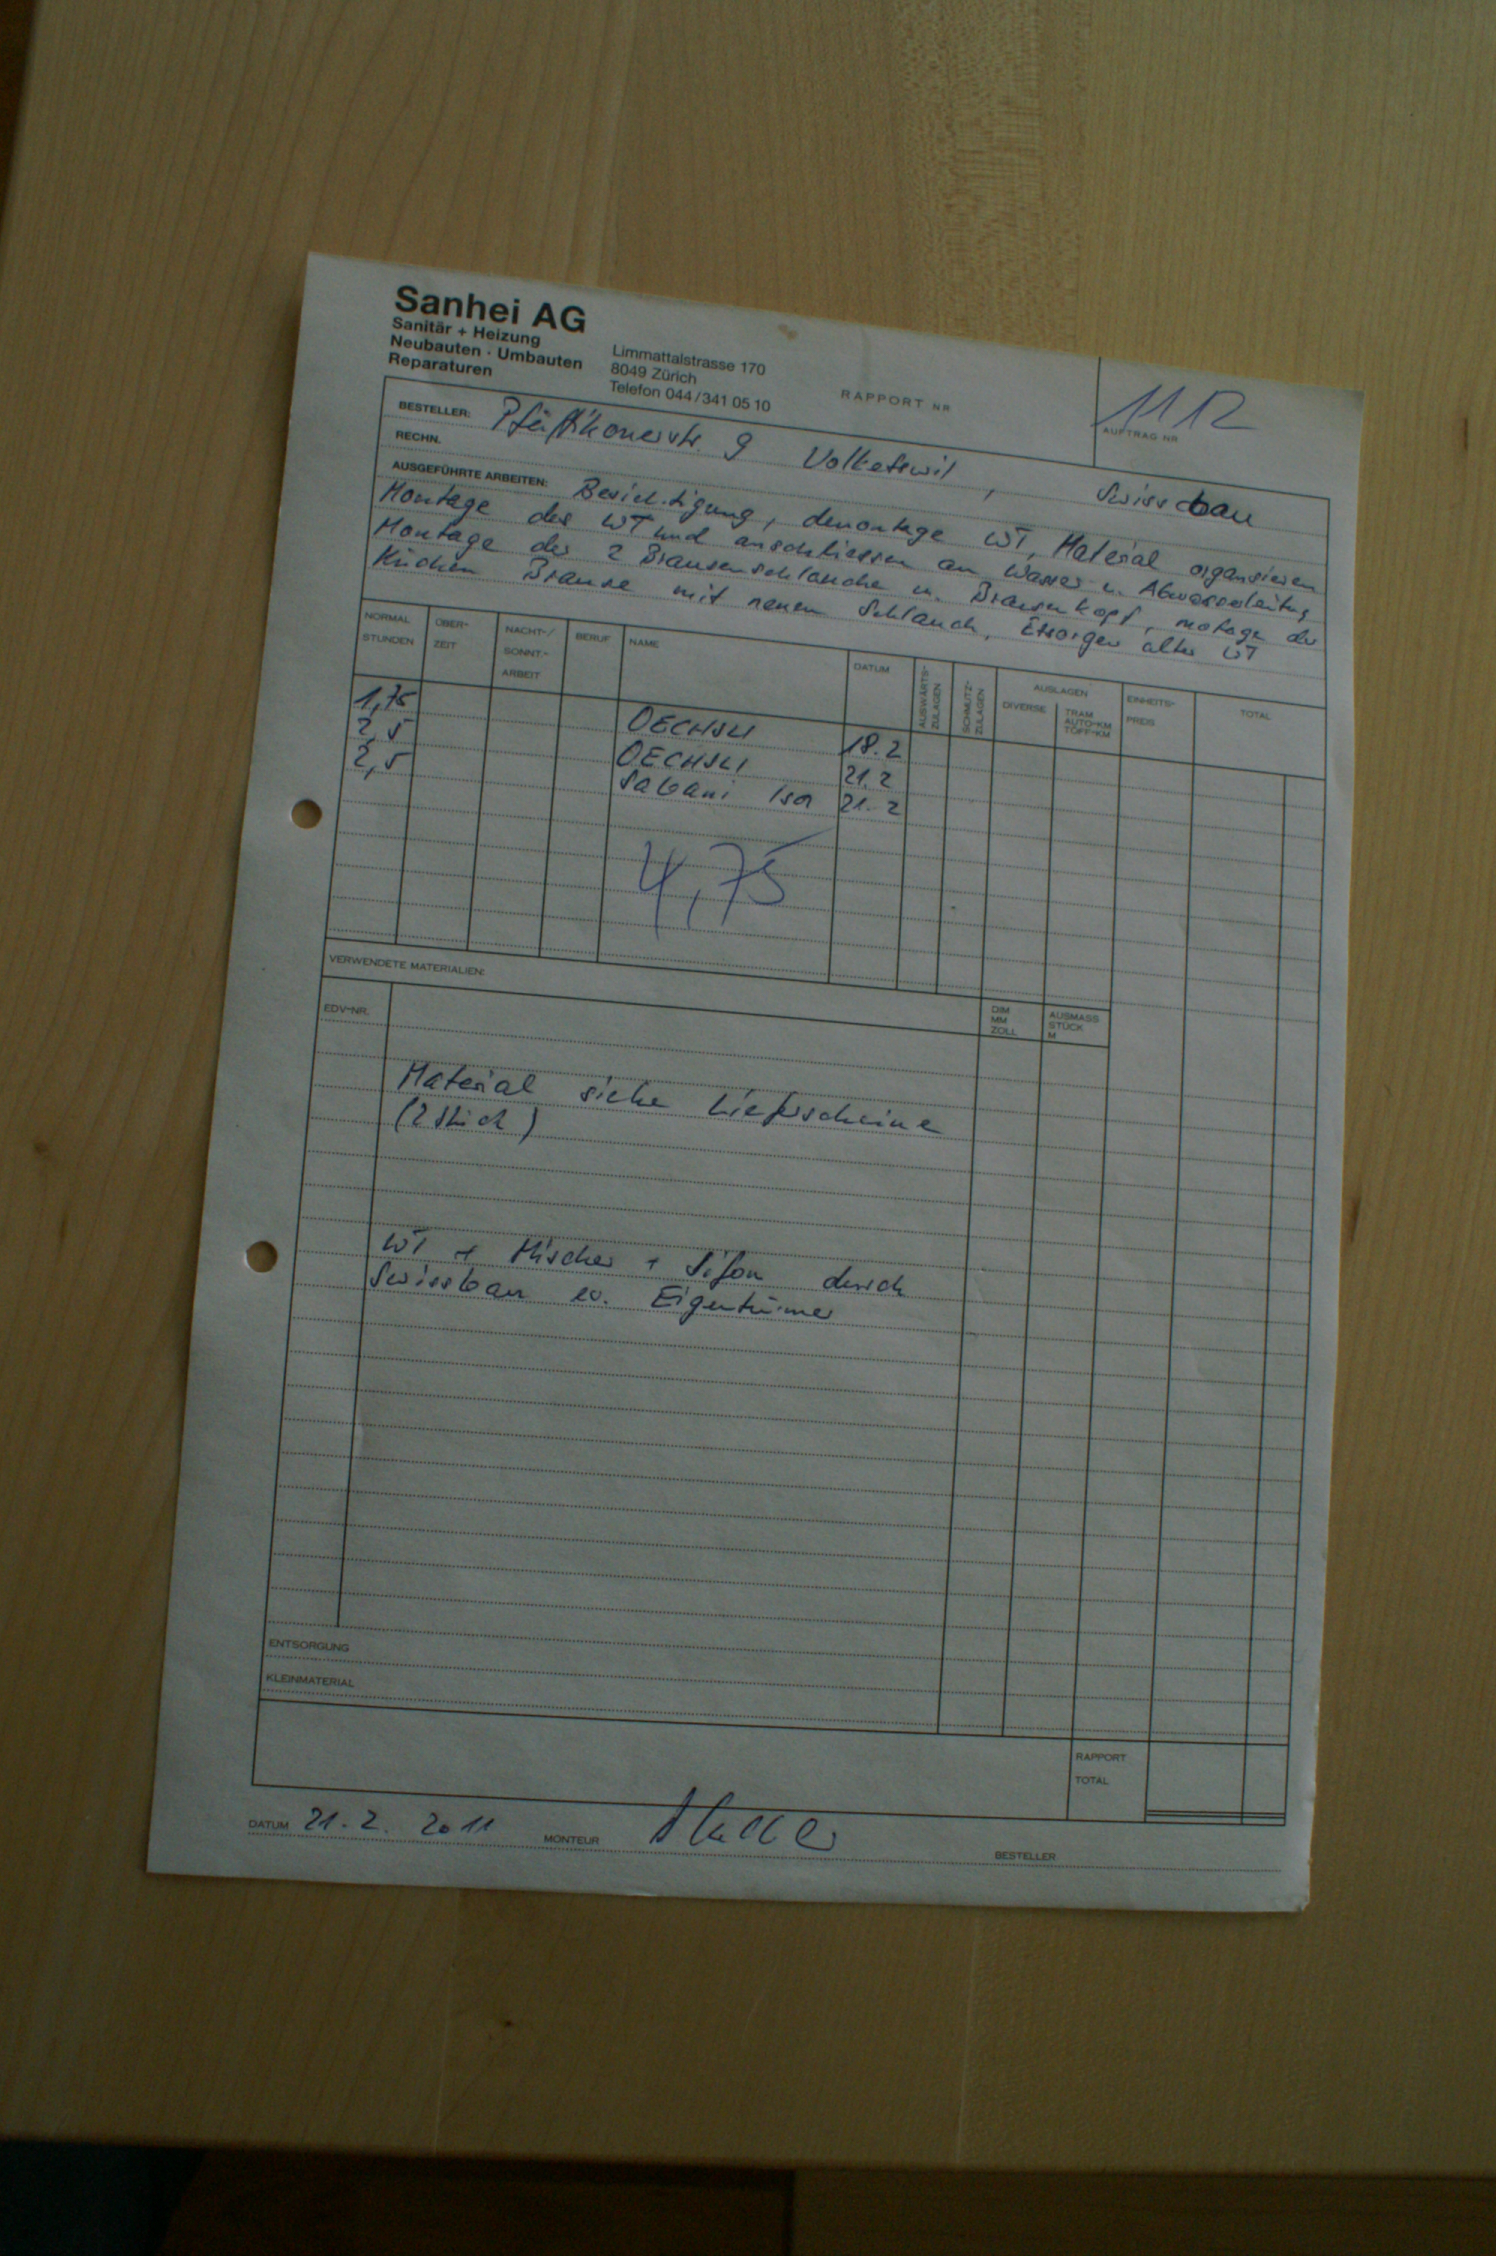 Sanhei AG
Sanitär + Heizung
Neubauten · Umbauten
Reparaturen
Limmattalstrasse 170
8049 Zürich
Telefon 044/341 05 10
RAPPORT NR
1112
AUFTRAG NR
BESTELLER: Pfäffikonerstr. 9 Volketswil, Swissbau
RECHN.
AUSGEFÜHRTE ARBEITEN: Besichtigung, demontage WT, Material organsieren
Montage des WT und anschliessen an Wasser u. Abwasserleitung
Montage der 2 Brausenschläuche u. Brausenkopf, motage der
Küchen Brause mit neuem Schlauch, Etsorgen altes WT
NORMAL STUNDEN ÜBER-ZEIT NACHT-/ SONNT.- ARBEIT BERUF NAME DATUM AUSWÄRTS-ZULAGEN SCHMUTZ-ZULAGEN AUSLAGEN DIVERSE TRAM AUTO-KM TÖFF-KM EINHEITS-PREIS TOTAL
1,75 OECHSLI 18.2
2,5 OECHSLI 21.2
2,5 Sabani Isa 21.2
4,75
VERWENDETE MATERIALIEN:
EDV-NR. DIM MM ZOLL AUSMASS STÜCK M
Material siehe Lieferscheine
(2 Stück)
WT + Mischer + Sifon durch
Swissbau ev. Eigentümer
ENTSORGUNG
KLEINMATERIAL
RAPPORT
TOTAL
DATUM 21.2. 2011 MONTEUR BESTELLER